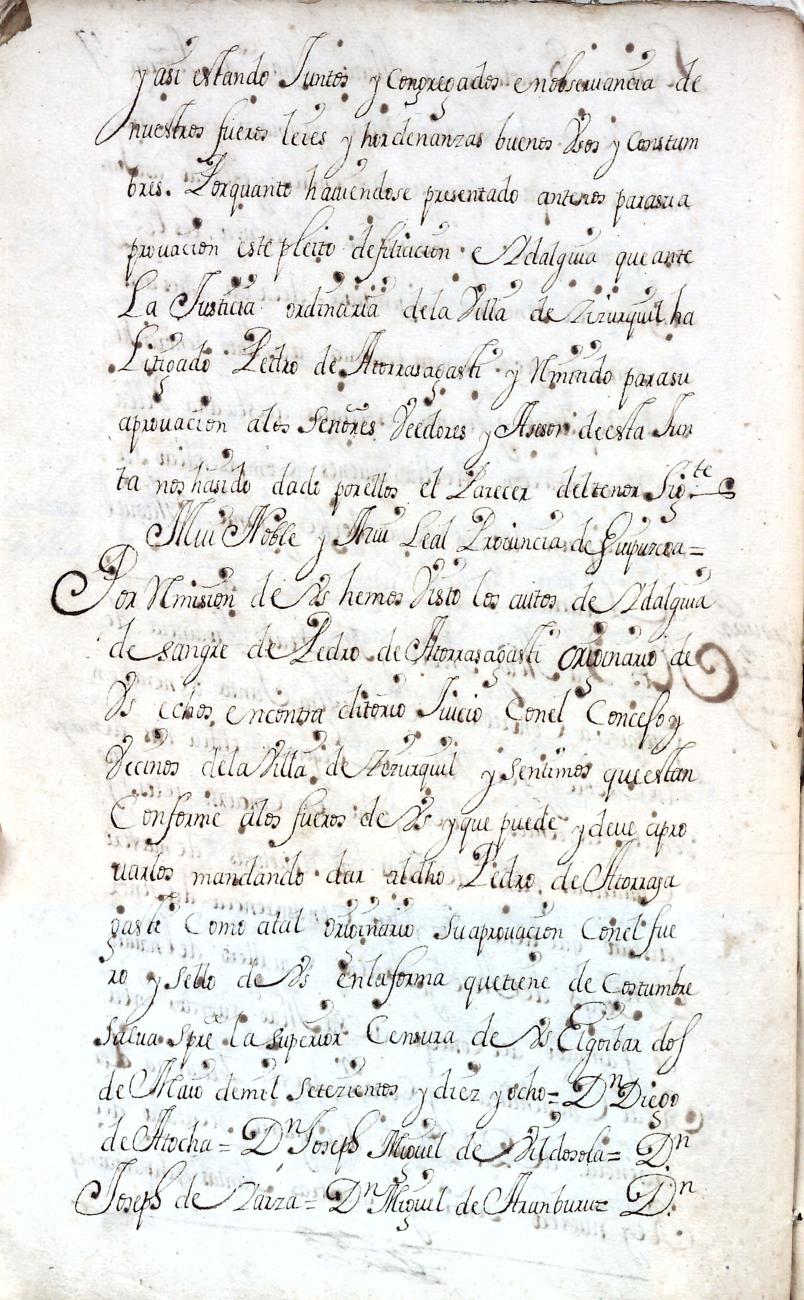 y asi estando Juntos y Congregados enobseruancia de
nuestros fueros leies y hordenanzas buenos Vsos y Constum
bres. Porquanto hauiendose presentado antenos parasu a
prouacion este pleito defiliacion e Ydalguia que ante
La Justicia ordinaria dela Villa de Zizurquil ha
Litigado Pedro de Atorrasagasti y Rmitido parasu
aprouacion alos Señores Veedores y Asesor deesta Jun
ta nos hasido dado porellos el Parecer deltenor Sigte
Mui Noble y Mui Leal Prouincia de Guipuzcoa =
Por Rmision de Vs hemos Visto los autos de Ydalguia
de sangre de Pedro de Atorrasagasti originario de
Vs echos encontra ditorio Juicio Conel Concejo y
Vecinos dela Villa de Zizurquil y sentimos queestan
Conforme alos fueros de Vs y que puede y deve apro
uarlos mandando dar aldho Pedro de Atorrasa
gasti Como atal originario su aprouacion Conel fue
ro y sello de Vs enlaforma quetiene de Costumbre
salua spre la superior Censura de Vs Elgoibar dos
de Maio demil setezientos y diez y ocho = Dn Diego
de Atocha = Dn Joseph Miguel de Vildosola = Dn
Joseph de Zarza = Dn Miguel de Aranburu = Dn